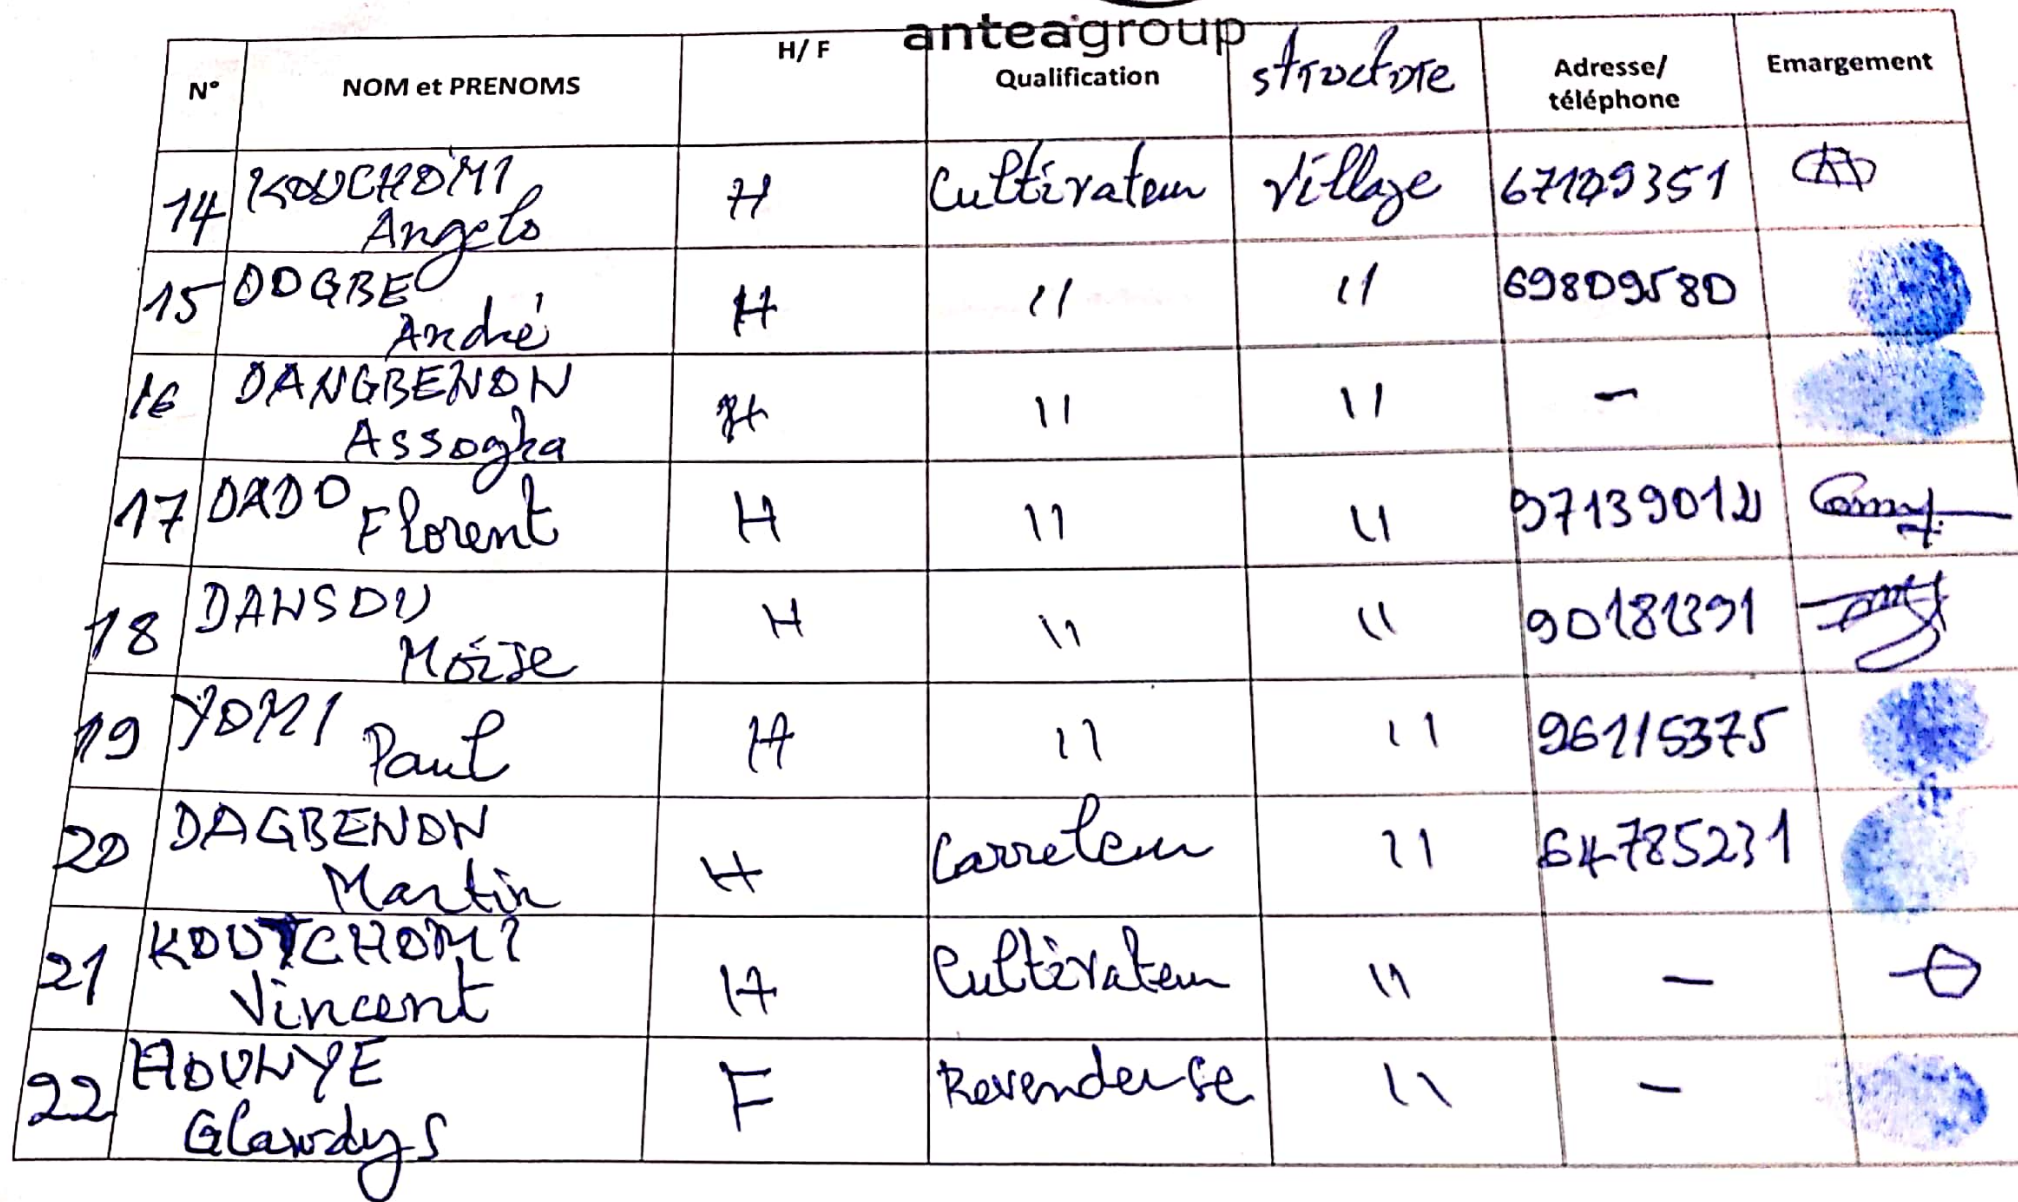 anteagroup
N° NOM et PRENOMS H/ F Qualification structure Adresse/ téléphone Emargement
14 KOUCHOMI Angelo H Cultivateur Village 67109351
15 DOGBE André H " " 69809580
16 DANGBENON Assogba H " " -
17 DADO Florent H " " 9713901
18 DANSOU Moïse H " " 90181391
19 YOMI Paul H " " 96115375
20 DAGBENON Martin H Carreleur " 64785231
21 KOUTCHOMI Vincent H Cultivateur " -
22 HOUNYE Glawdys F Revendeuse " -